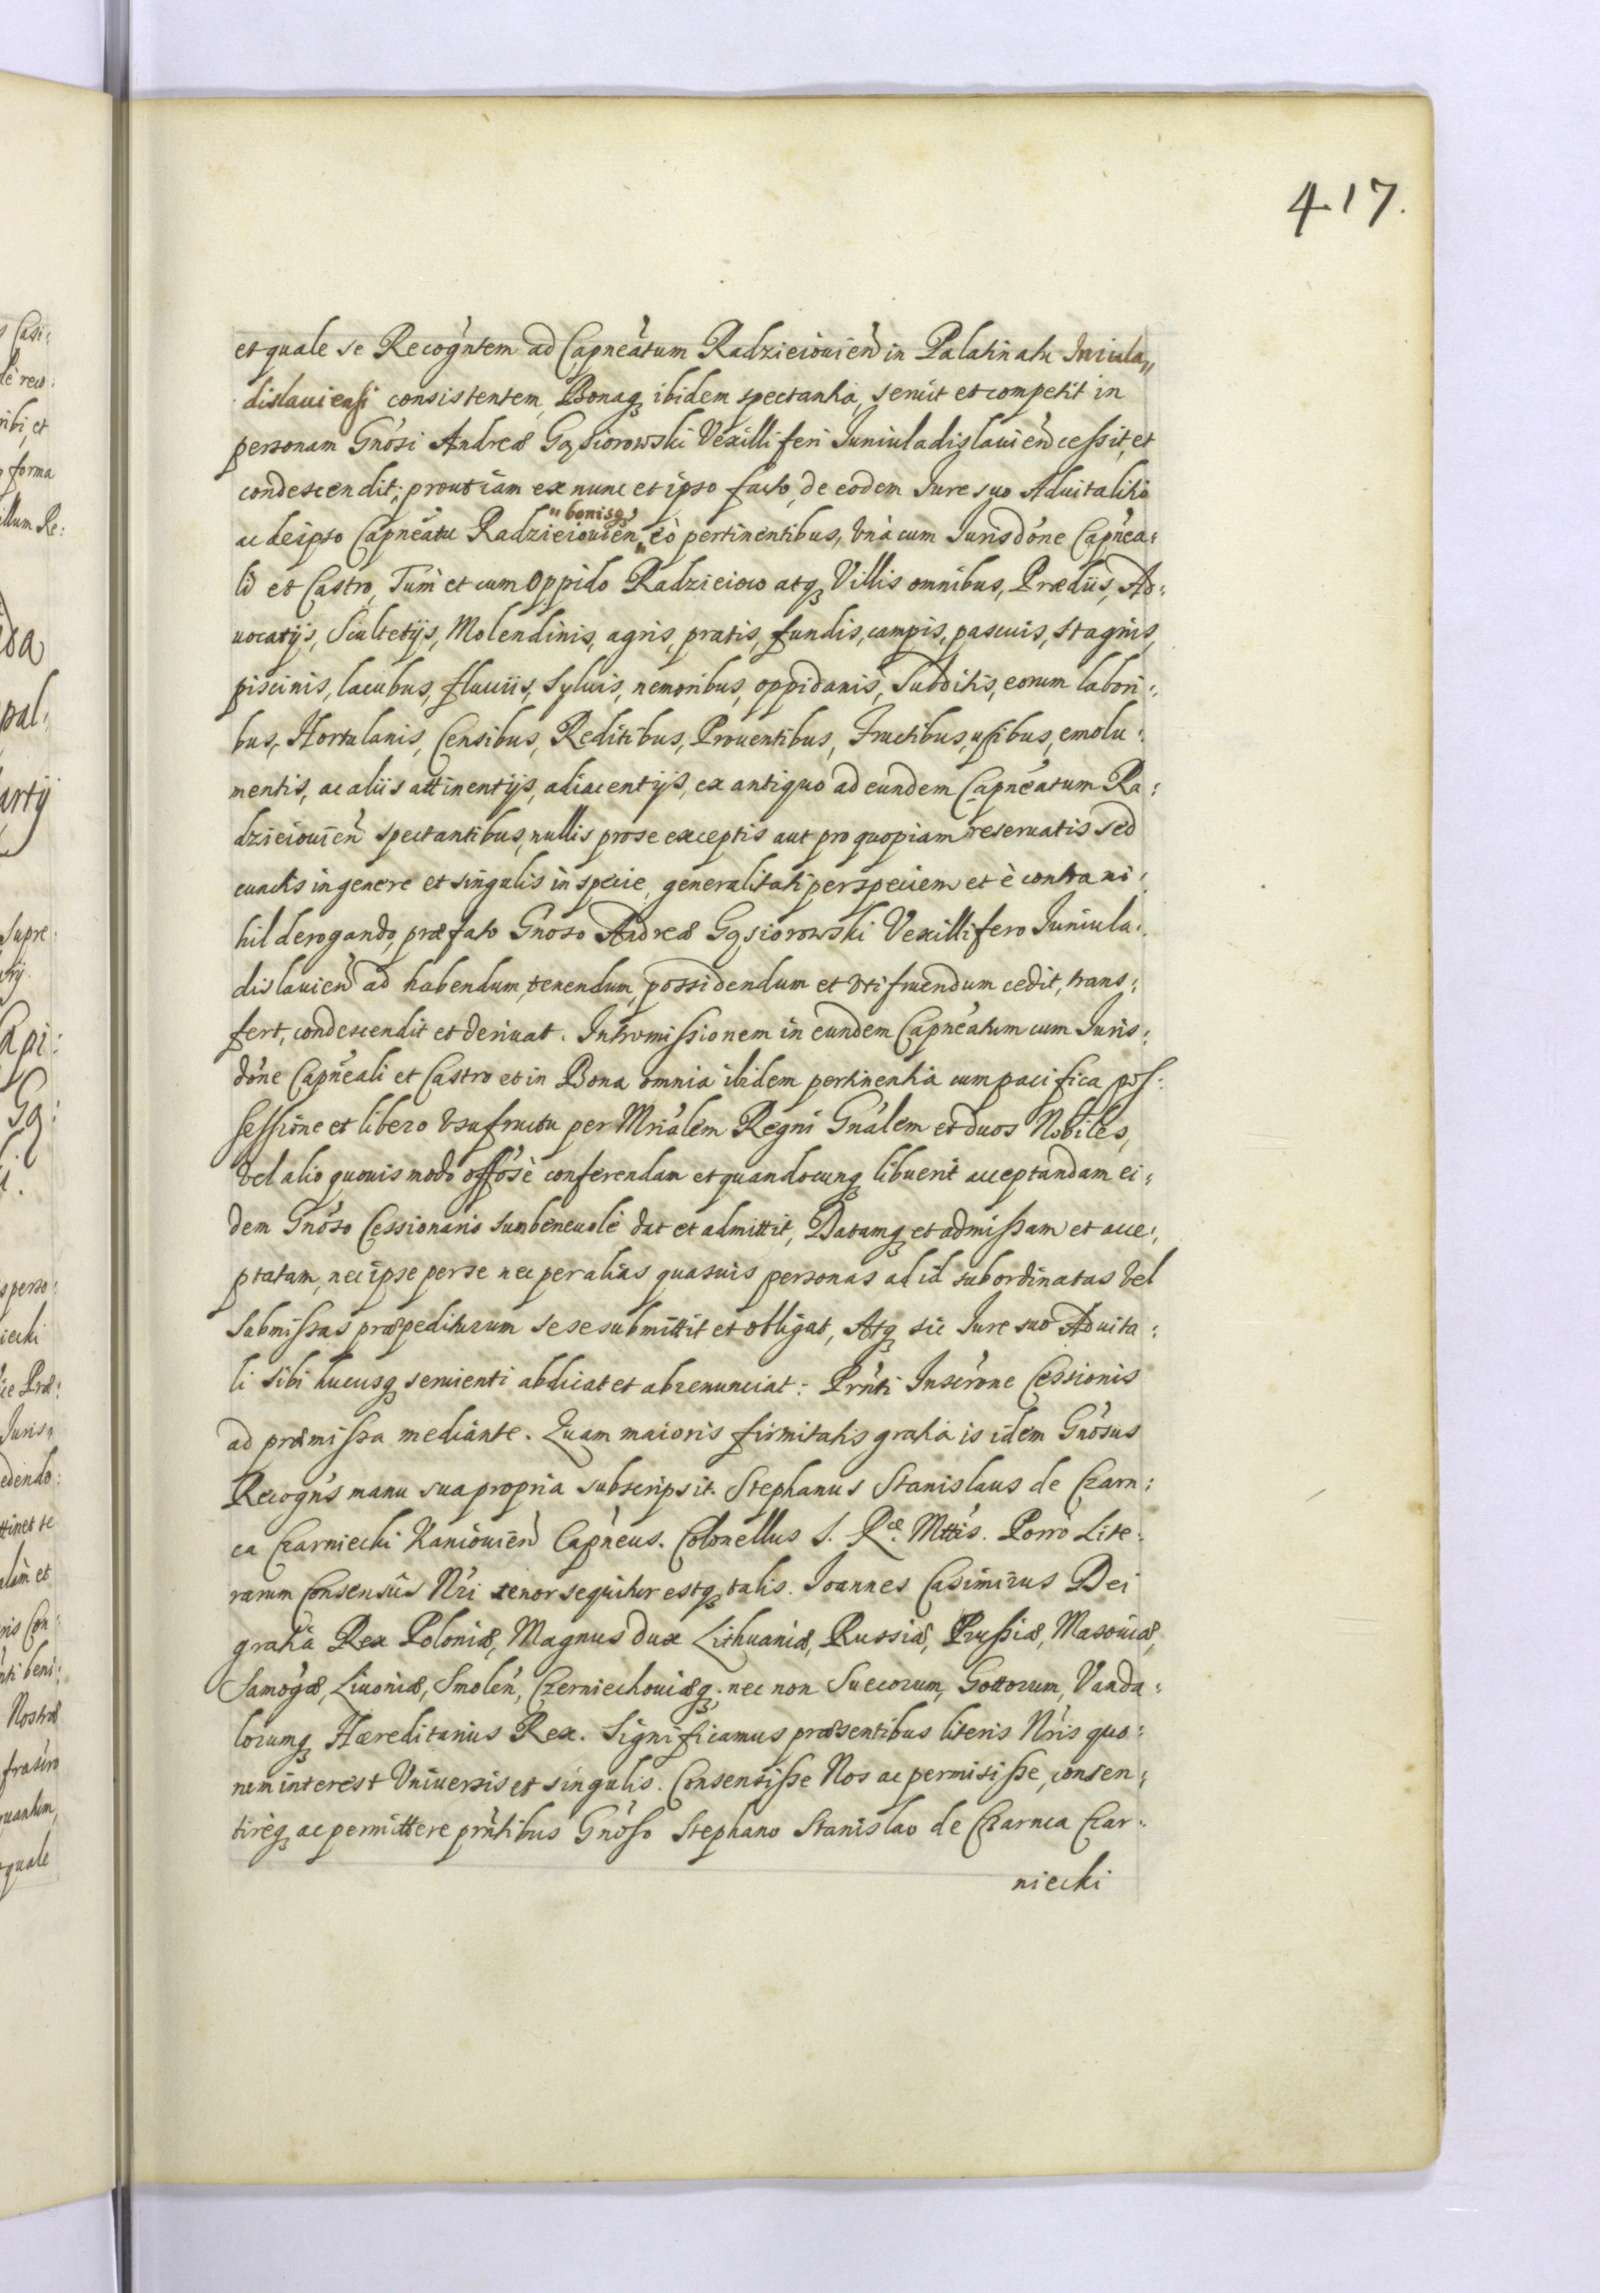 417.
et quale se Recogńtem ad Capnéatum Radzieiouień in Palatinatu Iuniula„
dislauiensi consistentem, Bonaq₃ ibidem spectantia, seruit et competit in
personam Gnósi Andreæ Gąsiorowski Vexilliferi Iuniuladislauień cessit, et
condescendit; prout iam ex nunc et ipso facto, de eodem Iure suo Aduitalitio
ac de ipso Capnéatu Radzieiouień „bonisq₃" eò pertinentibus, vnà cum Jurisdóne Capnéa:
li et Castro, Tùm et cum Oppido Radzieiow atq₃ Villis omnibus, Prædiis, Ad:
uocatijs, Scultetijs, Molendinis, agris, pratis, fundis, campis, pascuis, stagnis,
piscinis, lacubus, fluuiis, syluis, nemoribus, oppidanis, Subditis, eorum labori:
bus, Hortulanis, Censibus, Reditibus, Prouentibus, Fructibus, usibus, emolu:
mentis, ac aliis attinentijs, adiacentijs, ex antiquo ad eundem Capnéatum Ra:
dzieiouień spectantibus, nullis pro se exceptis aut pro quopiam reseruatis sed
cunctis in genere et singulis in specie, generalitati per speciem et è contra ni:
hil derogando, præfato Gnoso Andreæ Gąsiorowski Vexillifero Iuniula:
dislauień ad habendum, tenendum, possidendum et vtifruendum cedit, trans:
fert, condescendit et deriuat. Intromissionem in eundem Capnéatum cum Juris:
dóne Capnéali et Castro et in Bona omnia ibidem pertinentia cum pacifica pos:
sessione et libero vsufructu per Mriálem Regni Gnálem et duos Nobiles,
vel alio quouis modo offósè conferendam et quandocunq₃ libuerit acceptandam ei:
dem Gnóso Cessionario suo beneuolè dat et admittit, Datamq₃ et admissam et acce:
ptatam, nec ipse per se nec per alias quasuis personas ad id subordinatas vel
submissas præpediturum sese submittit et obligat, Atq₃ sic Iure suo Aduita:
li sibi hucusq₃ seruienti abdicat et abrenunciat: Prńti Inscróne Cessionis
ad præmissa mediante. Quam maioris firmitatis gratia is idem Gnósus
Recogńs manu sua propria subscripsit. Stephanus Stanislaus de Czarn:
ca Czarniecki Kaniouień Capńeus. Colonellus S. R.æ Mttis. Porrò Lite:
rarum Consensûs Nŕi tenor sequitur estq₃ talis. Joannes Casimirus Dei
gratia Rex Poloniæ, Magnus dux Lithuaniæ, Russiæ, Prussiæ, Masouiæ,
Samogæ, Liuoniæ, Smoleń, Czerniechouiæq₃. nec non Suecorum, Gottorum, Vanda:
lorumq₃ Hæreditarius Rex. Significamus præsentibus literis Nŕis quo:
rum interest Vniuersis et singulis. Consensisse Nos ac permisisse, consen:
tireq₃ ac permittere prńtibus Gnóso Stephano Stanislao de Czarnca Czar:
niecki